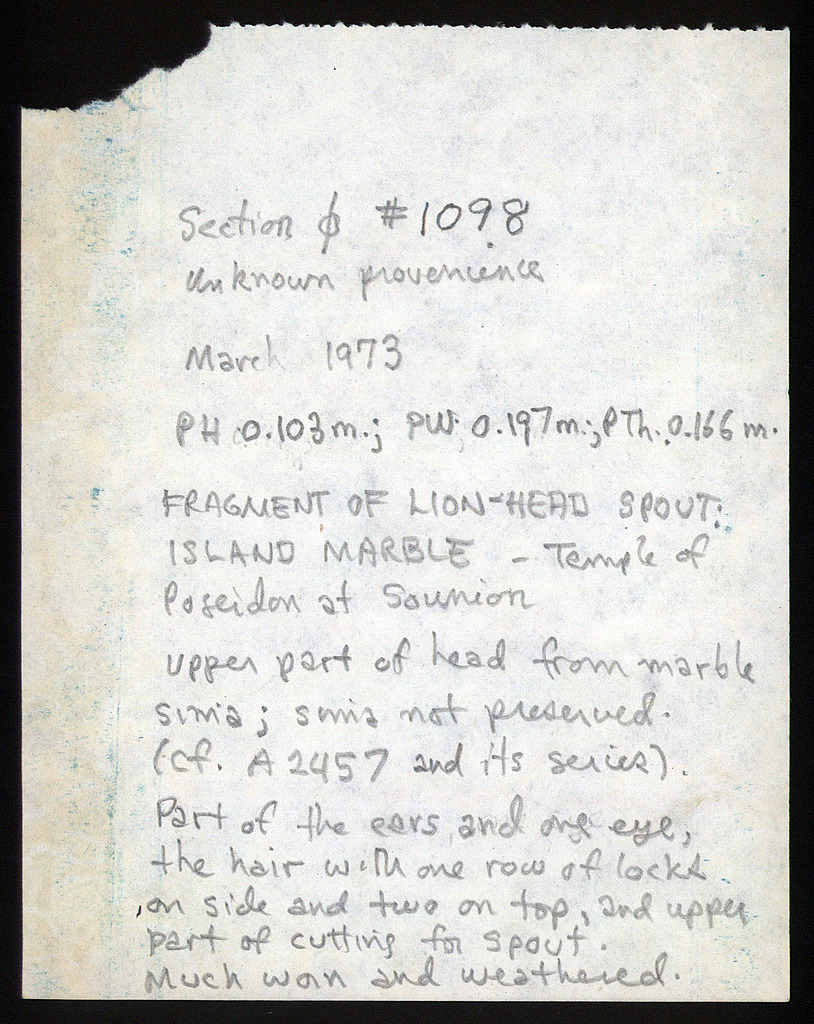 Section ϕ #1098
Unknown provenience
March 1973
PH 0.103m.; PW. 0.197m.; PTh. 0.166 m.
FRAGMENT OF LION-HEAD SPOUT:
ISLAND MARBLE - Temple of
Poseidon at Sounion
upper part of head from marble
sima; sima not preserved.
(cf. A 2457 and its series).
Part of the ears and one eye,
the hair with one row of locks
on side and two on top, and upper
part of cutting for spout.
Much worn and weathered.